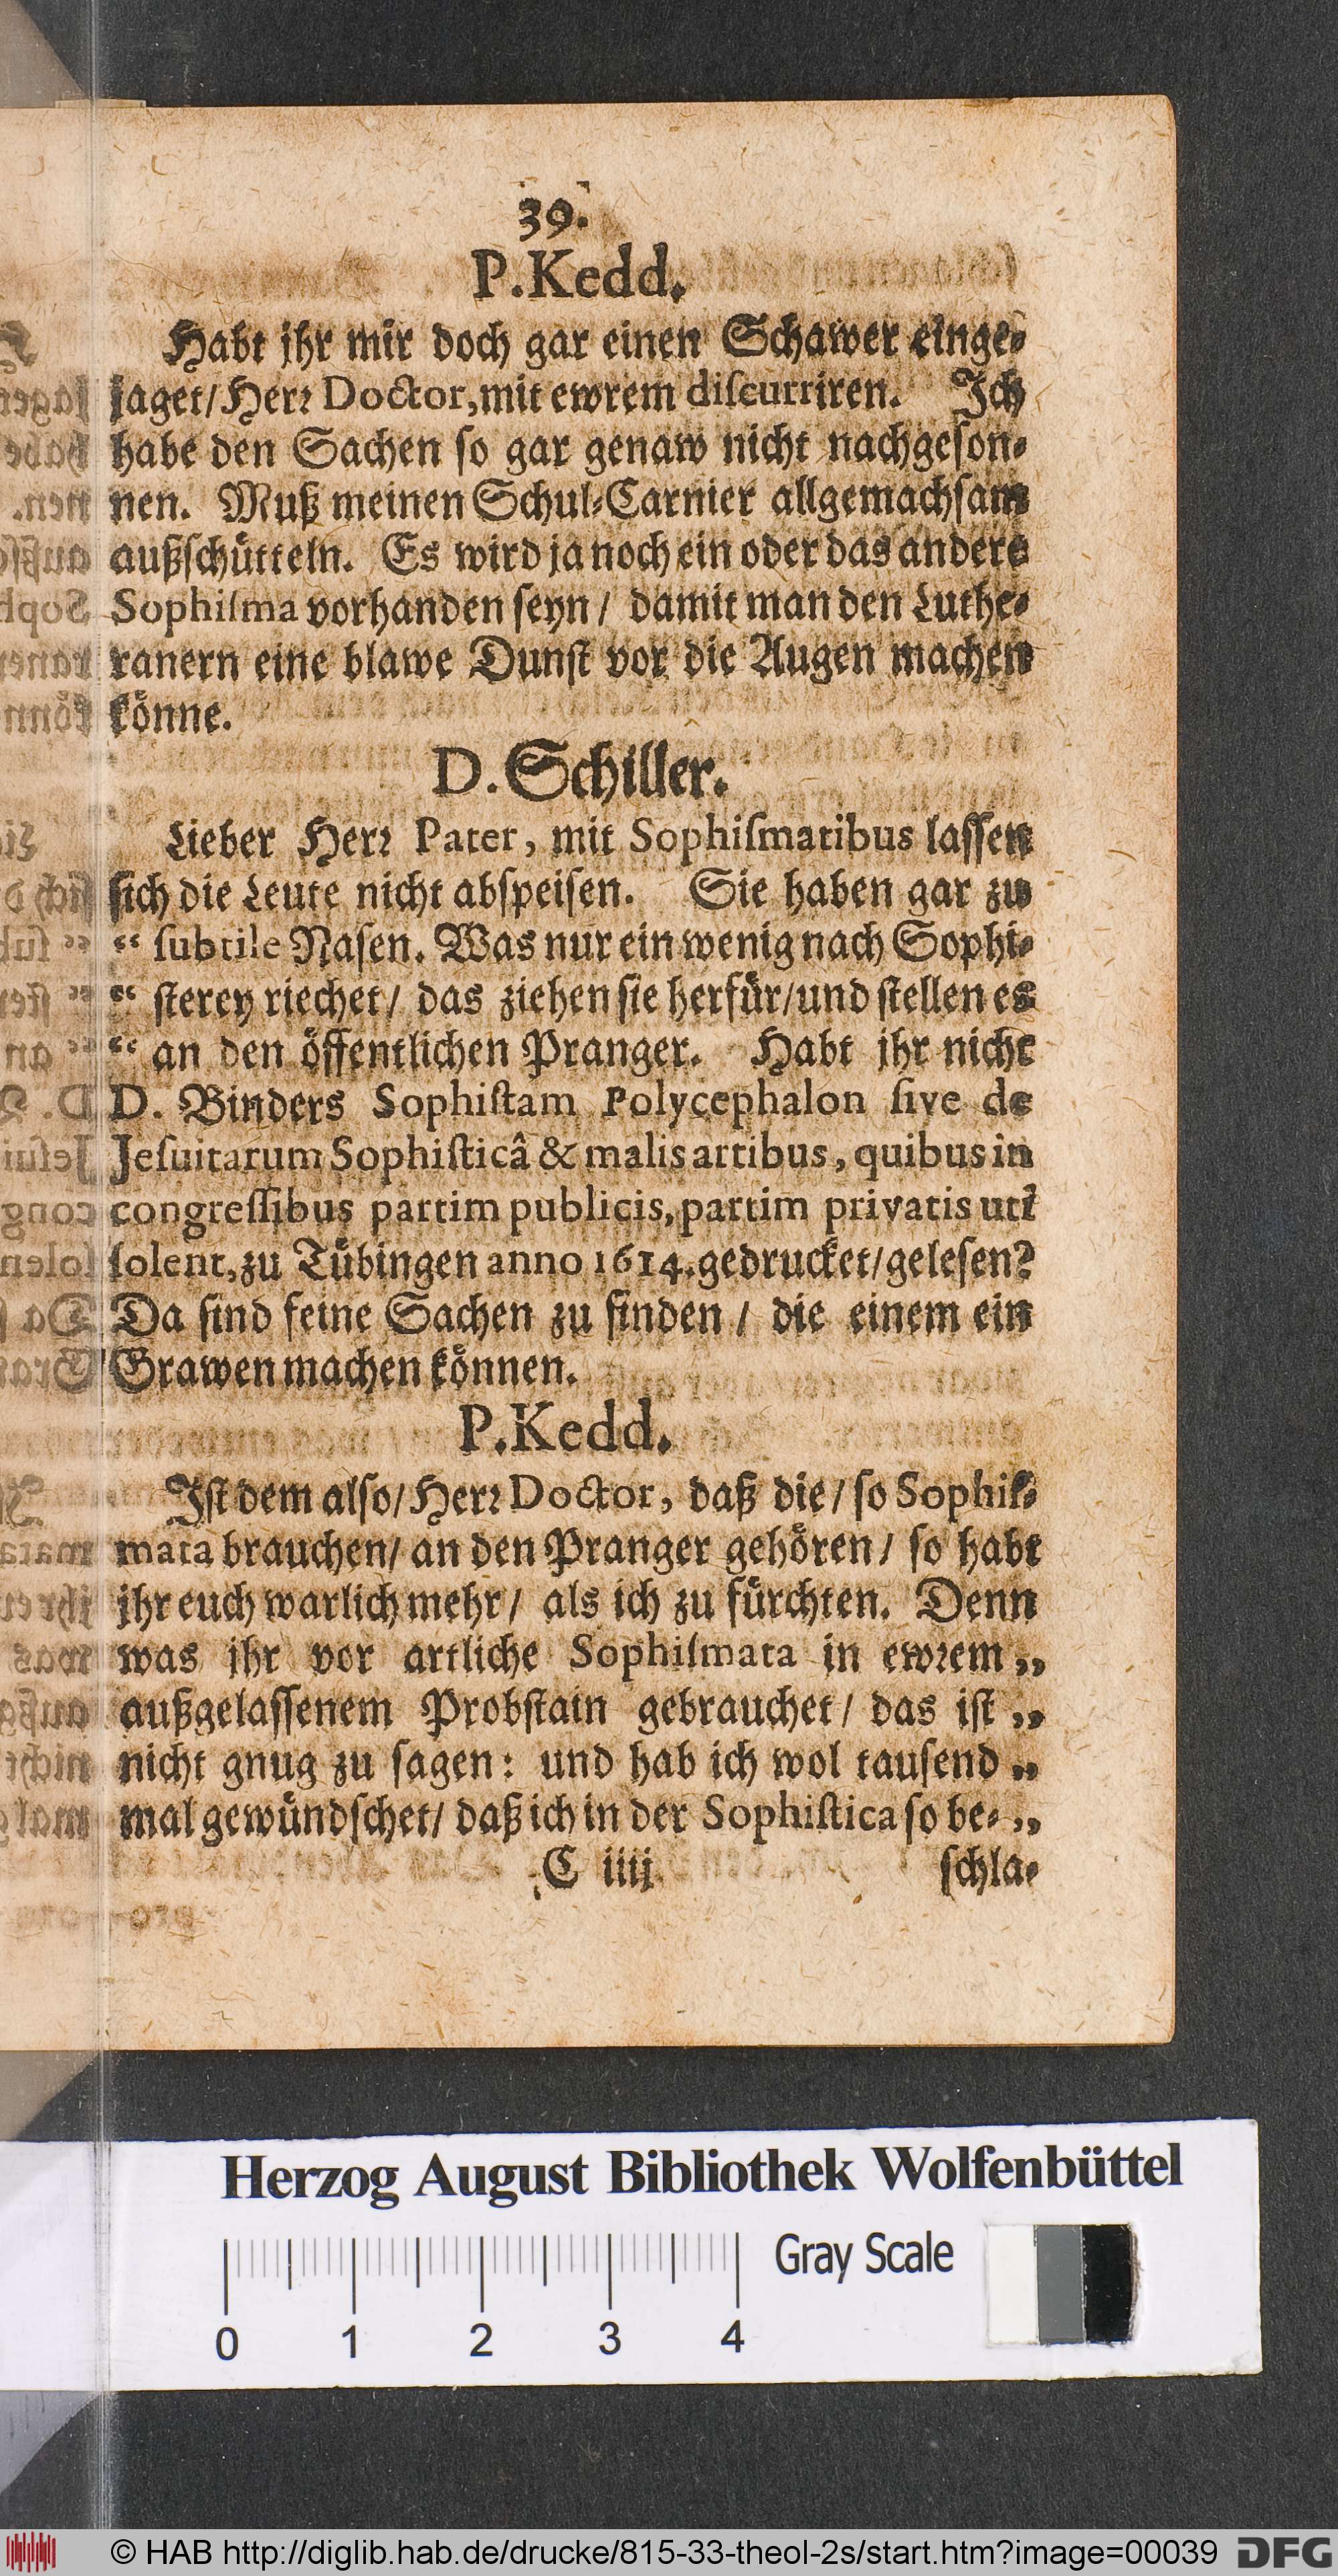 39.
P. Kedd.
Habt jhr mir doch gar einen Schawer einge-
jaget/ Herꝛ Doctor, mit ewrem diſcurriren. Ich
habe den Sachen ſo gar genaw nicht nachgeſon-
nen. Muß meinen Schul-Carnier allgemachſam
außſchütteln. Es wird ja noch ein oder das andere
Sophiſma vorhanden ſeyn/ damit man den Luthe-
ranern eine blawe Dunſt vor die Augen machen
könne.
D. Schiller.
Lieber Herꝛ Pater, mit Sophiſmatibus laſſen
ſich die Leute nicht abſpeiſen. Sie haben gar zu
“ ſubtile Naſen. Was nur ein wenig nach Sophi-
“ ſterey riechet/ das ziehen ſie herfür/ und ſtellen es
“ an den öffentlichen Pranger. Habt jhr nicht
D. Binders Sophiſtam Polycephalon ſive de
Jeſuitarum Sophiſticâ & malis artibus, quibus in
congreſſibus partim publicis, partim privatis uti
ſolent, zu Tübingen anno 1614. gedrucket/ geleſen?
Da ſind feine Sachen zu finden / die einem ein
Grawen machen können.
P. Kedd.
Iſt dem alſo/ Herꝛ Doctor, daß die/ ſo Sophiſ-
mata brauchen/ an den Pranger gehören/ ſo habt
jhr euch warlich mehr/ als ich zu fürchten. Denn
was jhr vor artliche Sophiſmata in ewꝛem „
außgelaſſenem Probſtain gebrauchet/ das iſt „
nicht gnug zu ſagen: und hab ich wol tauſend „
mal gewündſchet/ daß ich in der Sophiſtica ſo be- „
C iiij
ſchla-
Herzog August Bibliothek Wolfenbüttel
Gray Scale
0 1 2 3 4
© HAB http://diglib.hab.de/drucke/815-33-theol-2s/start.htm?image=00039 DFG